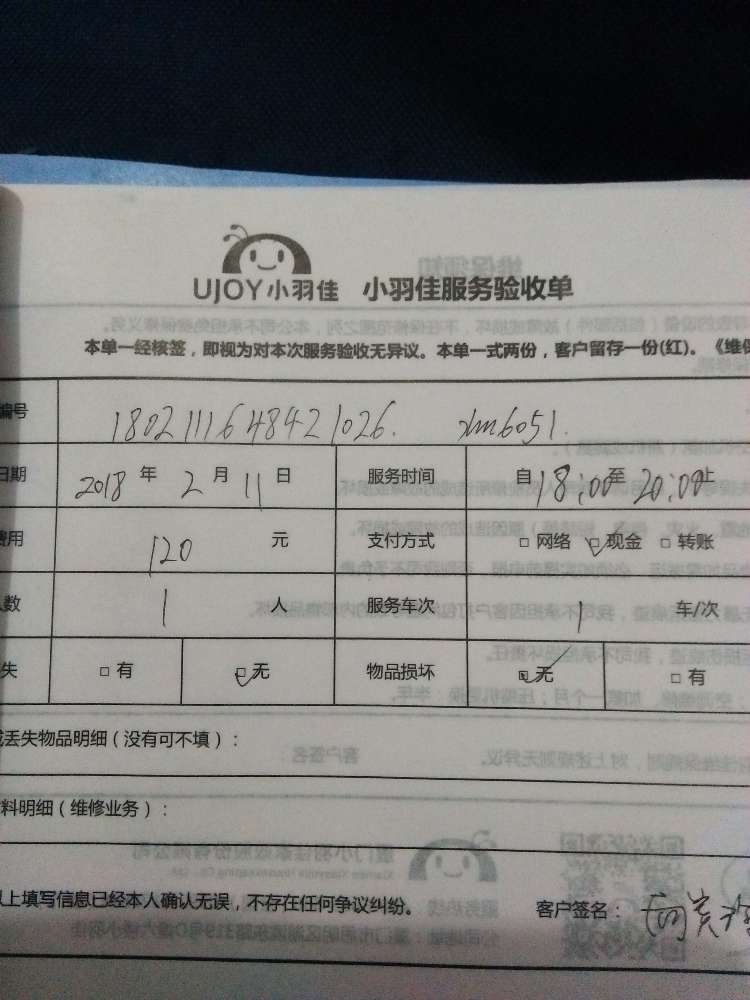 UJOY小羽佳 小羽佳服务验收单
本单一经核签，即视为对本次服务验收无异议。本单一式两份，客户留存一份(红)。《维保
编号 1802111648421026. xm6051.
日期 2018 年 2 月 11 日 服务时间 自 18:00 至 20:00 止
费用 120 元 支付方式 □ 网络 ☑ 现金 □ 转账
人数 1 人 服务车次 1 车/次
失 □ 有 ☑ 无 物品损坏 ☑ 无 □ 有
或丢失物品明细（没有可不填）：
材料明细（维修业务）：
以上填写信息已经本人确认无误，不存在任何争议纠纷。 客户签名：